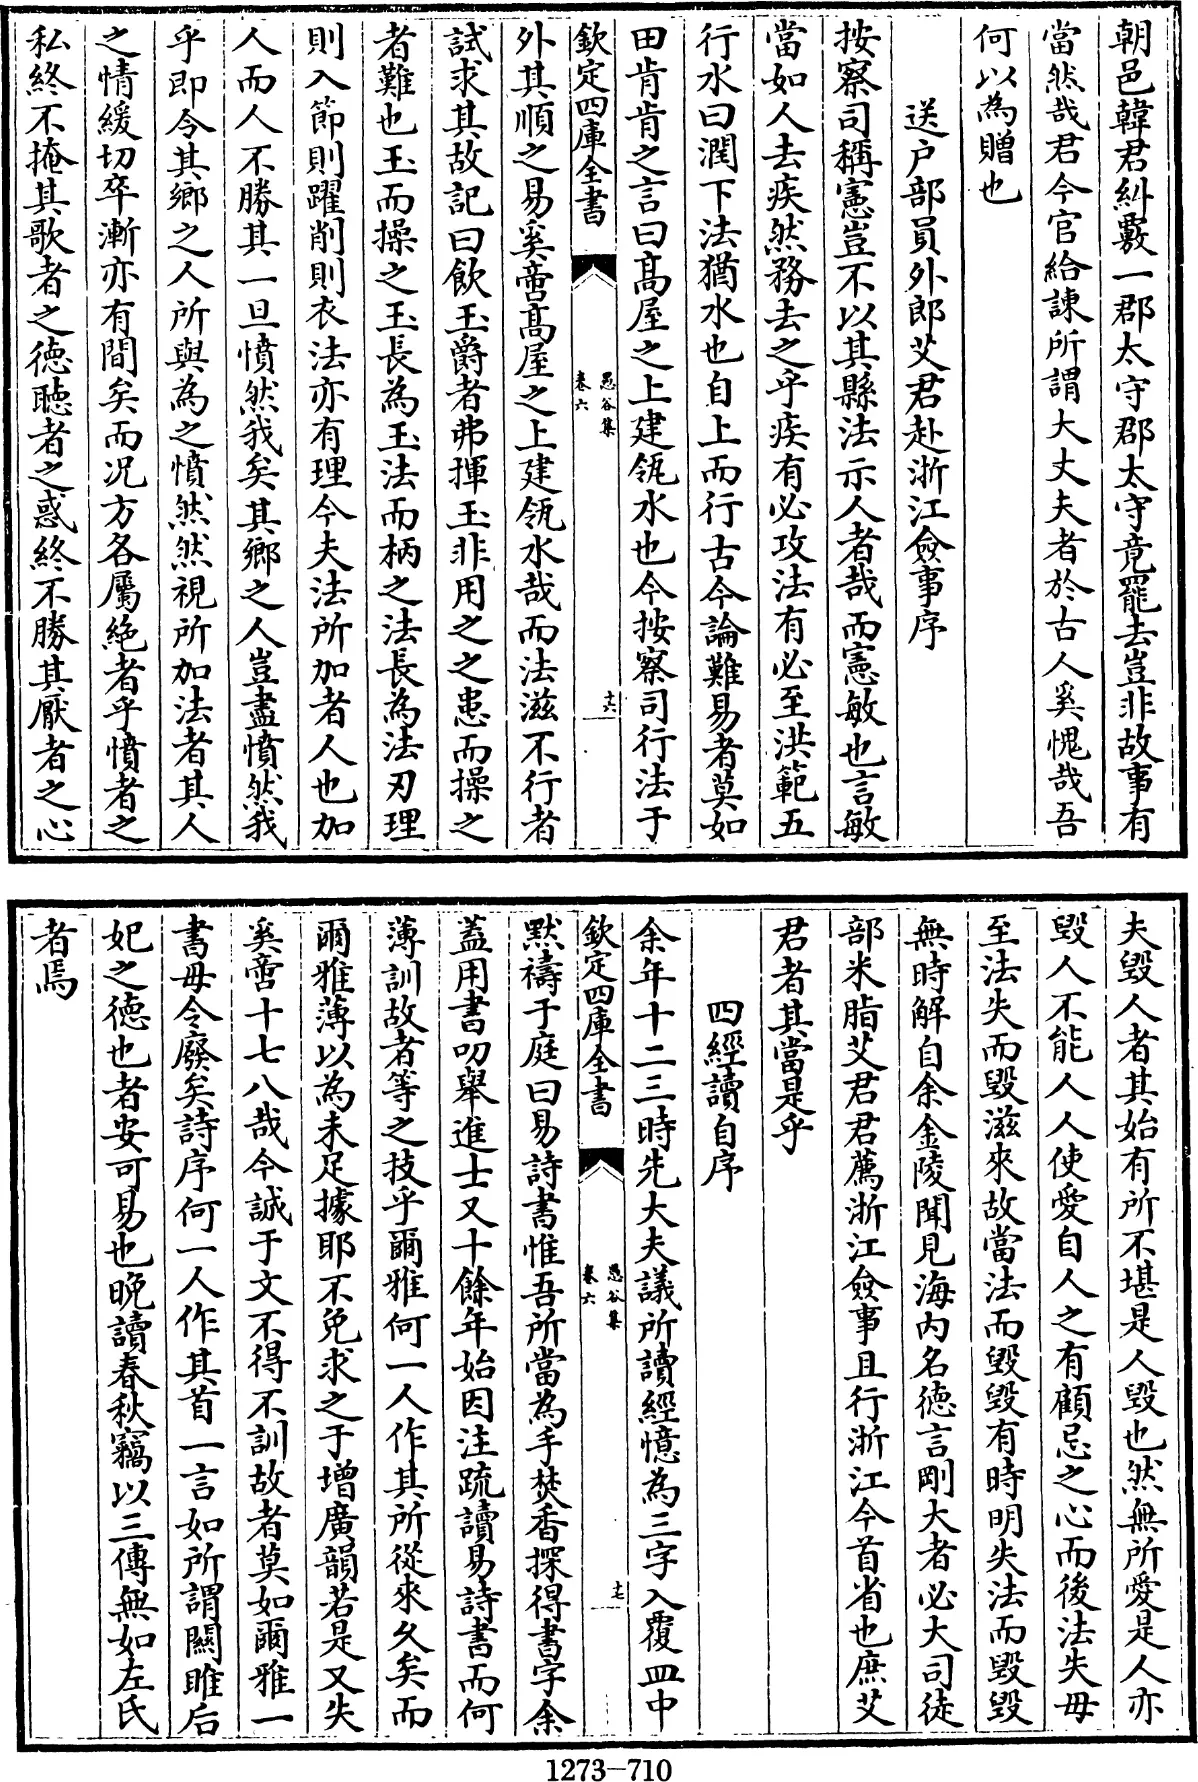 朝邑韓君糾覈一郡太守郡太守竟罷去豈非故事有
當然哉君今官給諫所謂大丈夫者於古人奚愧哉吾
何以為贈也
送户部員外郎艾君赴浙江僉事序
按察司稱憲豈不以其縣法示人者哉而憲敏也言敏
當如人去疾然務去之乎疾有必攻法有必至洪範五
行水曰潤下法猶水也自上而行古今論難易者莫如
田肯肯之言曰髙屋之上建瓴水也今按察司行法于
欽定四庫全書
愚谷集
卷六
十六
外其順之易奚啻髙屋之上建瓴水哉而法滋不行者
試求其故記曰飲玉爵者弗揮玉非用之之患而操之
者難也玉而操之玉長為玉法而柄之法長為法刃理
則入節則躍削則衣法亦有理今夫法所加者人也加
人而人不勝其一旦憤然我矣其鄉之人豈盡憤然我
乎即令其鄉之人所與為之憤然然視所加法者其人
之情緩切卒漸亦有間矣而况方各屬絶者乎憤者之
私終不掩其歌者之德聽者之惑終不勝其厭者之心
夫毁人者其始有所不堪是人毁也然無所愛是人亦
毁人不能人人使愛自人之有顧忌之心而後法失毋
至法失而毁滋來故當法而毁毁有時明失法而毁毁
無時解自余金陵聞見海内名德言剛大者必大司徒
部米脂艾君君薦浙江僉事且行浙江今首省也庶艾
君者其當是乎
四經讀自序
余年十二三時先大夫議所讀經憶為三字入覆皿中
欽定四庫全書
愚谷集
卷六
十七
默禱于庭曰易詩書惟吾所當為手焚香探得書字余
蓋用書叨舉進士又十餘年始因注疏讀易詩書而何
薄訓故者等之技乎爾雅何一人作其所從來久矣而
爾雅薄以為未足據耶不免求之于增廣韻若是又失
奚啻十七八哉今誠于文不得不訓故者莫如爾雅一
書毋令廢矣詩序何一人作其首一言如所謂關雎后
妃之德也者安可易也晚讀春秋竊以三傳無如左氏
者焉
1273—710